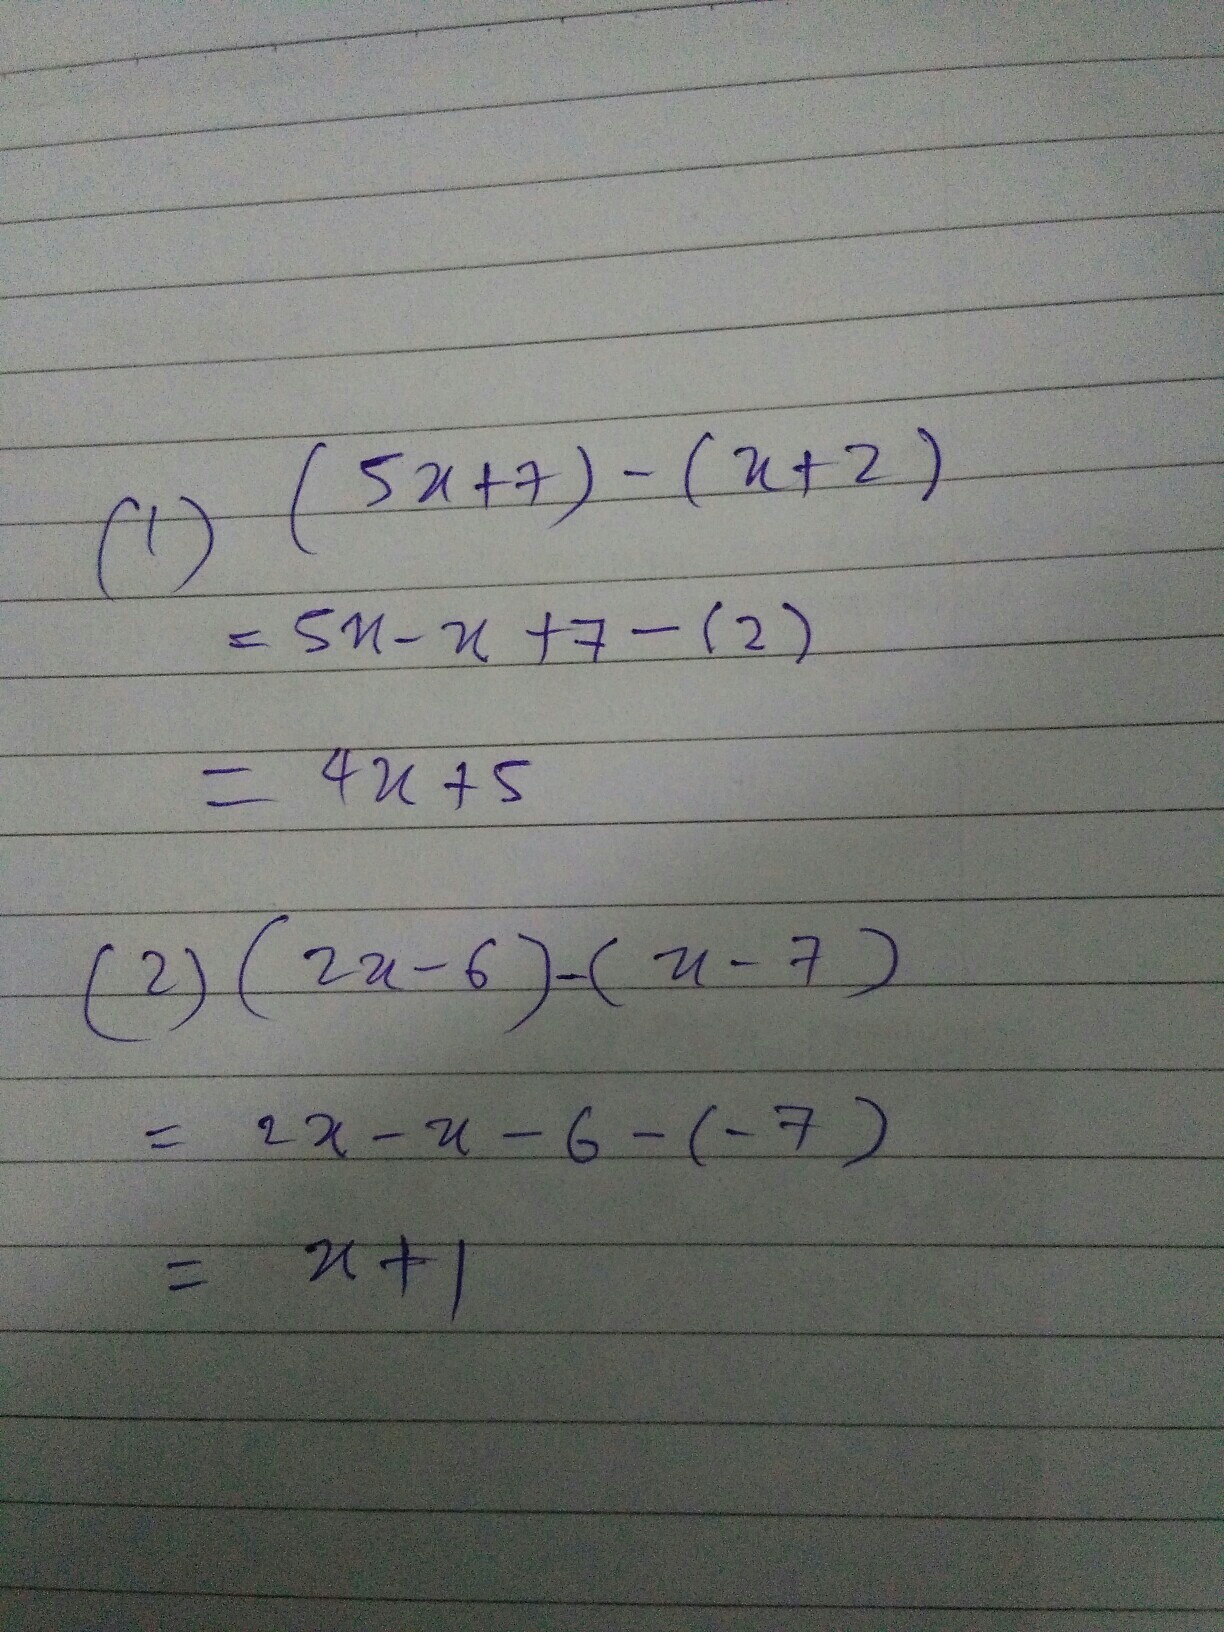 (1) (5x+7)-(x+2)
= 5x-x+7-(2)
= 4x+5
(2) (2x-6)-(x-7)
= 2x-x-6-(-7)
= x+1